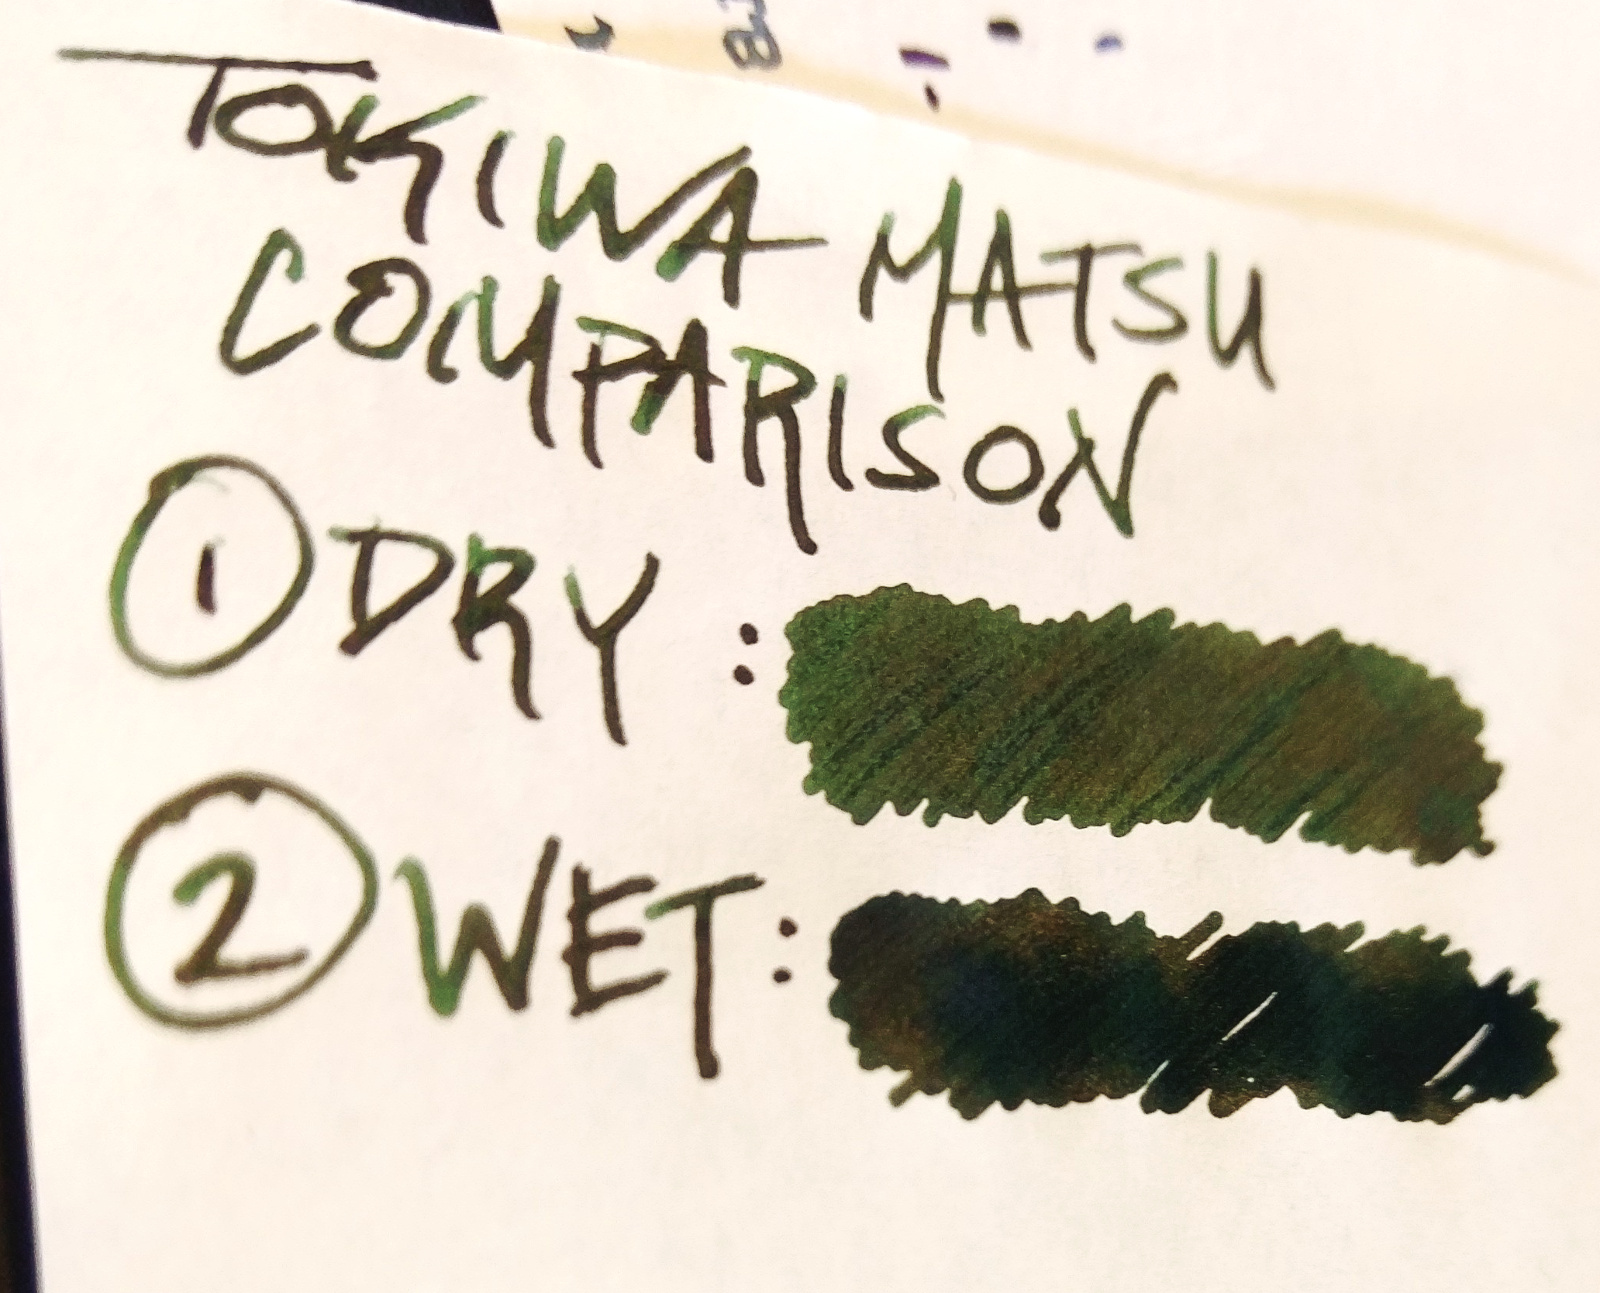 TOKIWA MATSU
COMPARISON
① DRY :
② WET :